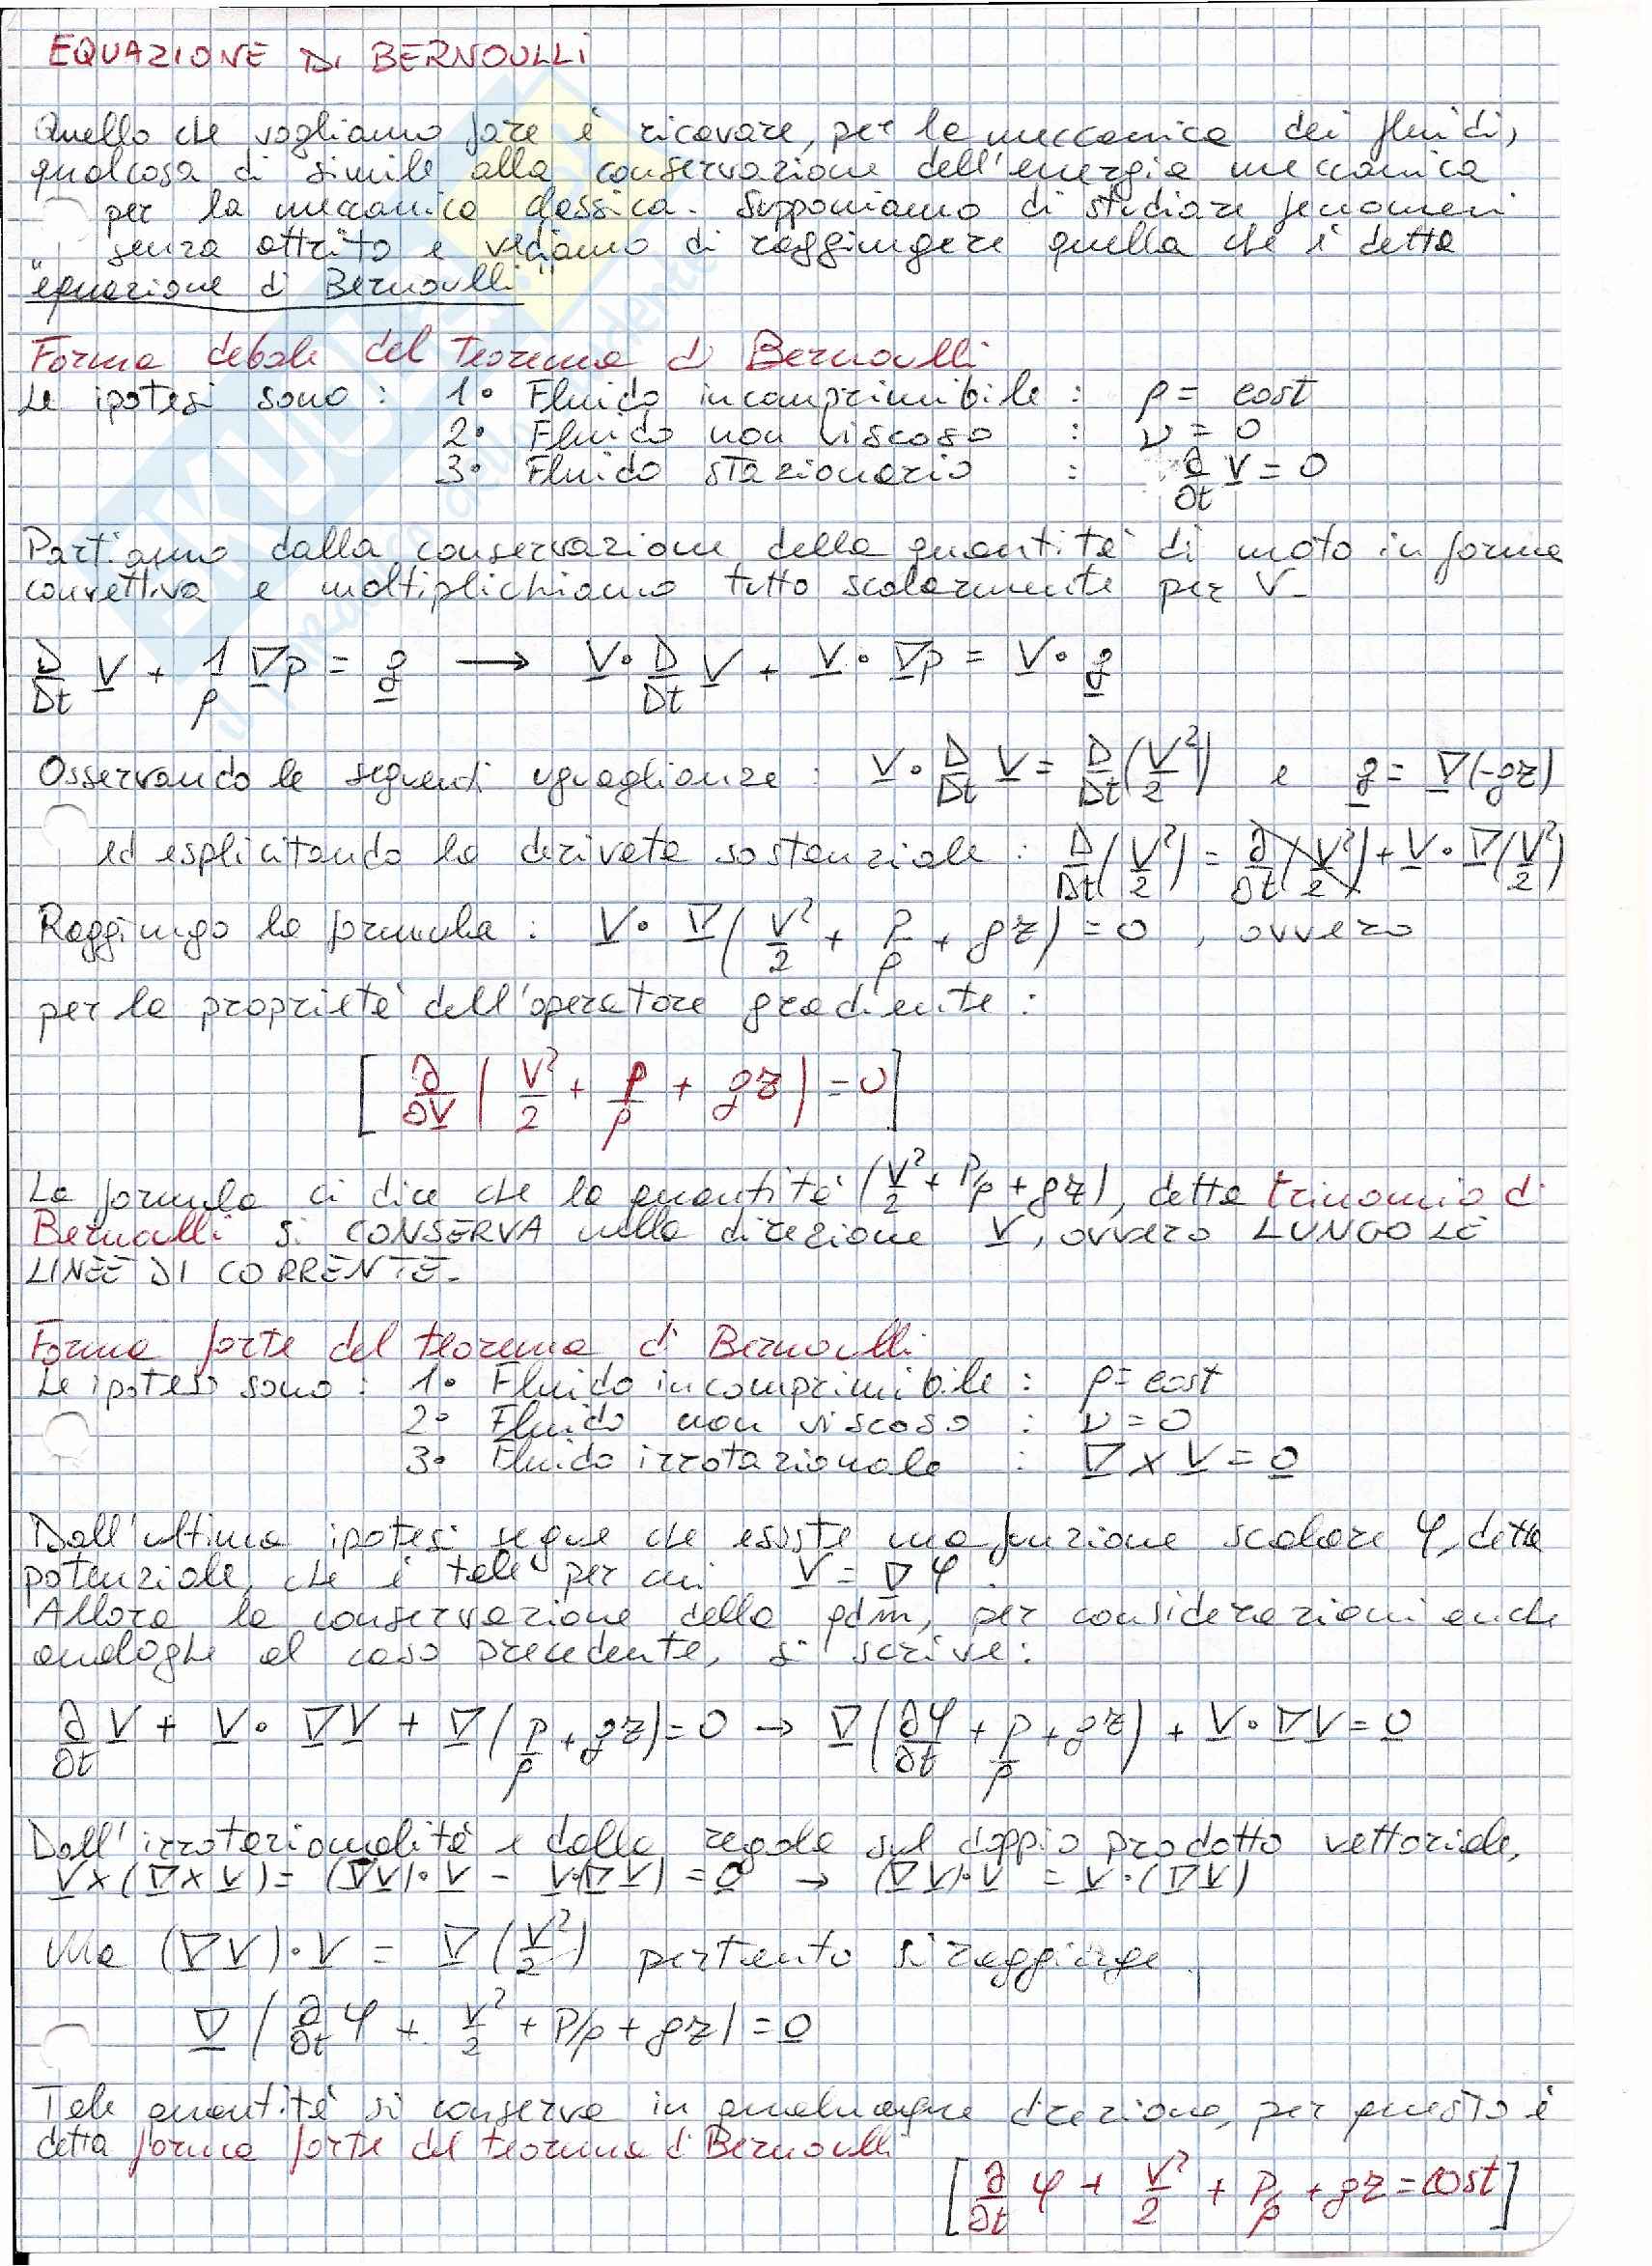 EQUAZIONE DI BERNOULLI
Quello che vogliamo fare è ricavare, per la meccanica dei fluidi,
qualcosa di simile alla conservazione dell'energia meccanica
per la meccanica classica. Supponiamo di studiare fenomeni
senza attrito e vediamo di raggiungere quella che è detta
"equazione di Bernoulli"
Forma debole del teorema di Bernoulli
Le ipotesi sono : 1° Fluido incomprimibile : ρ = cost
2° Fluido non viscoso : ν = 0
3° Fluido stazionario : ∂/∂t V = 0
Partiamo dalla conservazione della quantità di moto in forma
convettiva e moltiplichiamo tutto scalarmente per V.
D/Dt V + 1/ρ ∇p = g → V · D/Dt V + V · ∇p = V · g
Osservando le seguenti uguaglianze : V · D/Dt V = D/Dt (V²/2) e g = ∇(-gz)
ed esplicitando la derivata sostanziale : D/Dt (V²/2) = ∂/∂t (V²/2) + V · ∇(V²/2)
Raggiungo la formula : V · ∇( V²/2 + p/ρ + gz ) = 0 , ovvero
per la proprietà dell'operatore gradiente :
[ ∂/∂V ( V²/2 + p/ρ + gz ) = 0 ]
La formula ci dice che la quantità (V²/2 + P/ρ + gz), detta trinomio di
Bernoulli si CONSERVA nella direzione V, ovvero LUNGO LE
LINEE DI CORRENTE.
Forma forte del teorema di Bernoulli
Le ipotesi sono : 1° Fluido incomprimibile : ρ = cost
2° Fluido non viscoso : ν = 0
3° Fluido irrotazionale : ∇ × V = 0
Dall'ultima ipotesi segue che esiste una funzione scalare φ, detta
potenziale, che è tale per cui V = ∇φ .
Allora la conservazione della qdm, per considerazioni anche
analoghe al caso precedente, si scrive :
∂/∂t V + V · ∇V + ∇( p/ρ + gz ) = 0 → ∇( ∂φ/∂t + p/ρ + gz ) + V · ∇V = 0
Dall'irrotazionalità e dalla regola sul doppio prodotto vettoriale,
V × (∇ × V) = (∇V) · V - V·(∇V) = 0 → (∇V)·V = V·(∇V)
Ma (∇V) · V = ∇(V²/2) pertanto si raggiunge
∇( ∂/∂t φ + V²/2 + P/ρ + gz ) = 0
Tale quantità si conserva in qualunque direzione, per questo è
detta forma forte del teorema di Bernoulli
[ ∂/∂t φ + V²/2 + P/ρ + gz = cost ]